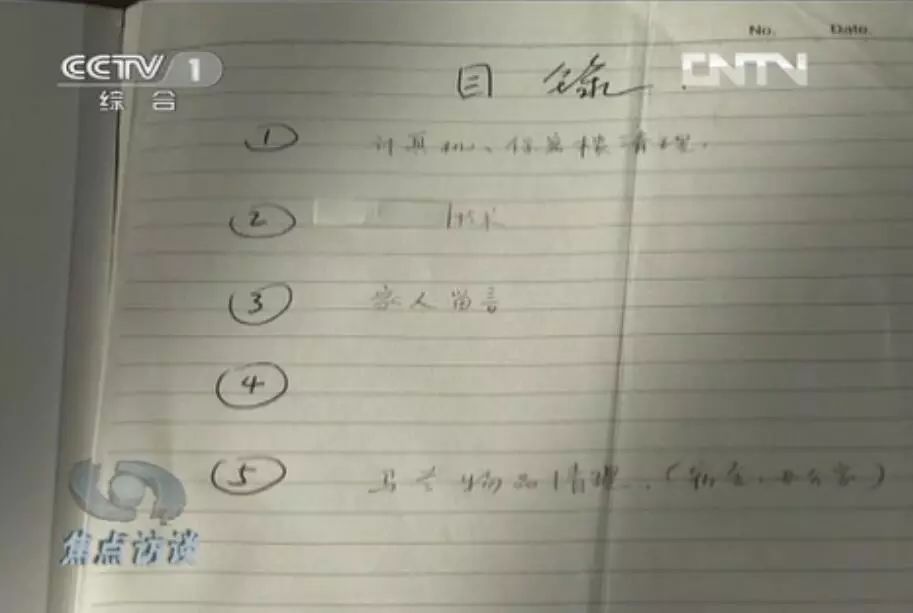 No. Date.
CCTV 1
综合
CNTV
目录
① 计算机、保密柜清理.
② 技术
③ 家人留言
④
⑤ 马兰物品清理.(宿舍、办公室)
焦点访谈